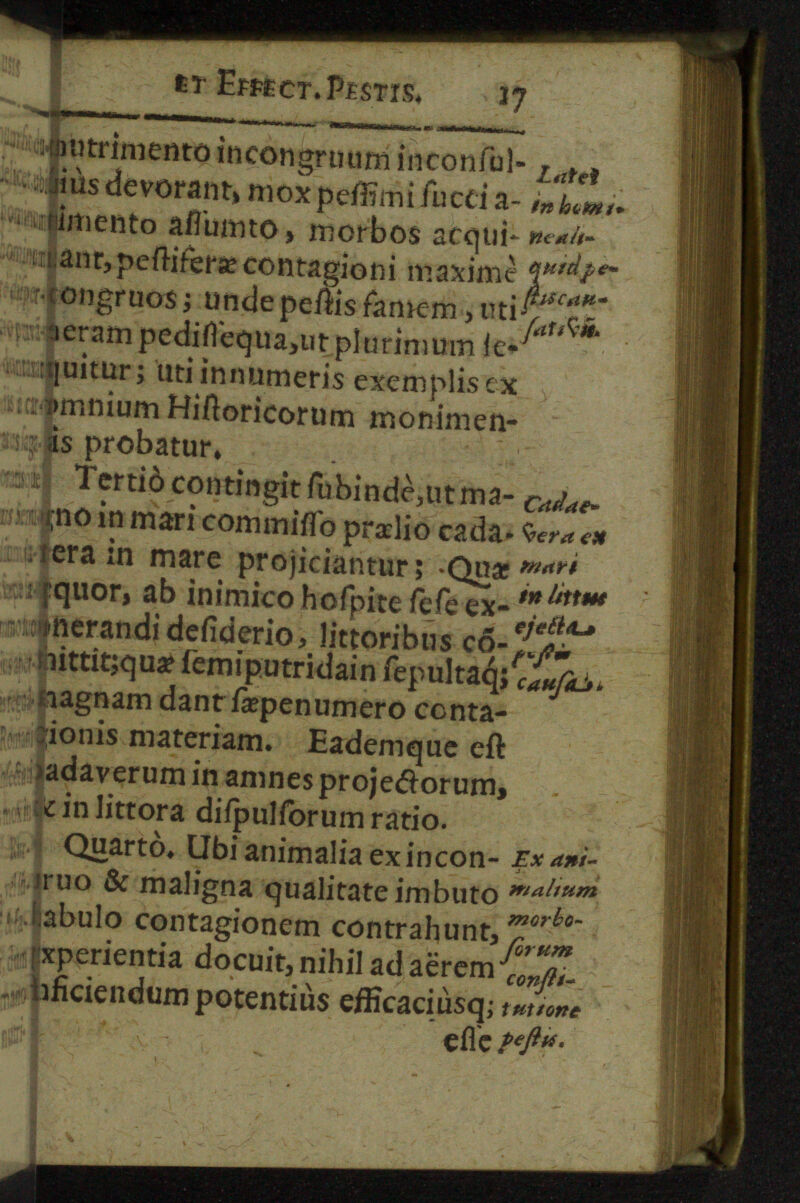 ET EFFECT. PESTIS. 37
nutrimento incongruum inconsul-
tiùs devorant, mox pessimi succi a-
limento assumto, morbos acqui-
rant, pestiferæ contagioni maximè
congruos; unde pestis famem, uti
heram pedissequa, ut plurimum se-
quitur; uti innumeris exemplis ex
omnium Historicorum monimen-
tis probatur.
Latet
in homi-
ne ali-
quid pe-
Tertiò contingit subindè, ut ma-
gno in mari commisso prælio cada-
vera in mare projiciantur; Quæ
æquor, ab inimico hospite sese ex-
onerandi desiderio, littoribus cõ-
mittit; quæ semiputrida insepultaq;
magnam dant sæpenumero conta-
gionis materiam. Eademque est
cadaverum in amnes projectorum,
& in littora dispulsorum ratio.
Cadae-
vera ex
mari
in littus
ejecta
causa.
Quartò. Ubi animalia ex incon-
gruo & maligna qualitate imbuto
pabulo contagionem contrahunt,
experientia docuit, nihil ad aërem
inficiendum potentiùs efficaciùsq;
esse
Ex ani-
malium
morbo-
sorum
consti-
tutione
pestis.